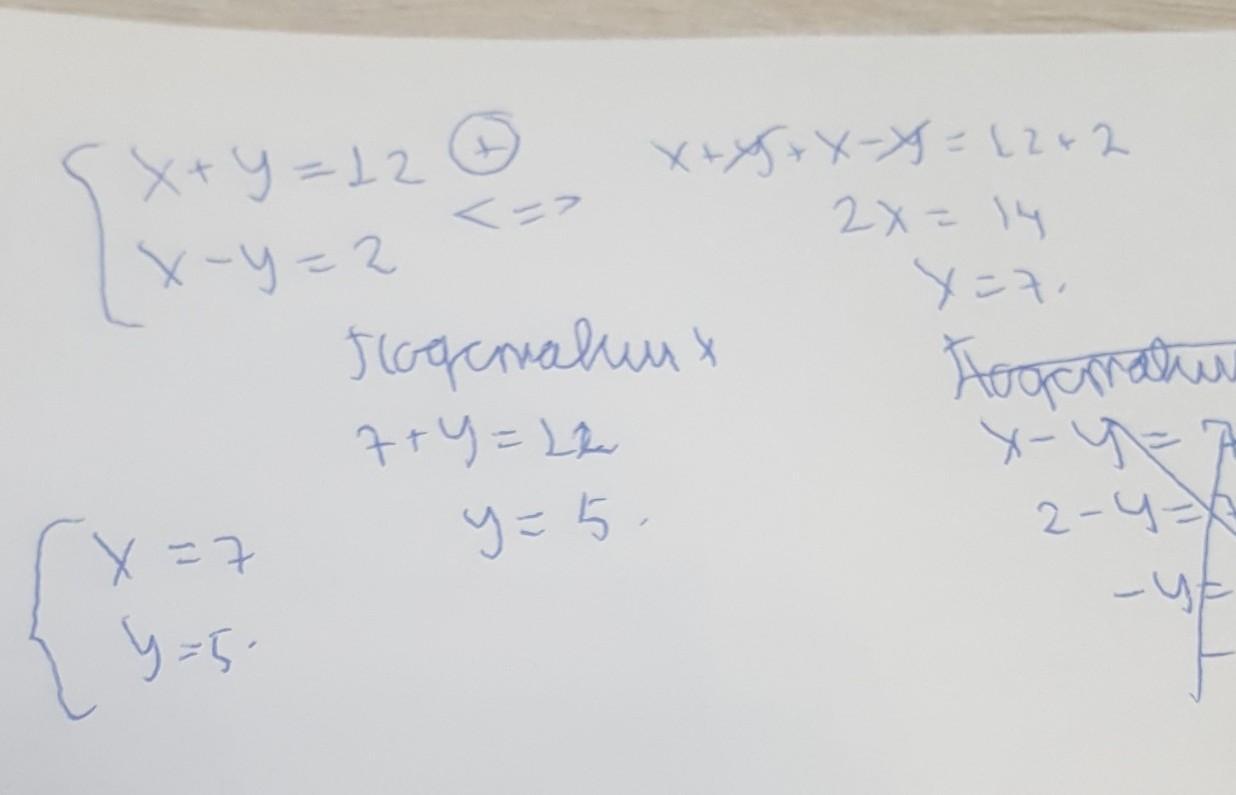 x + y = 12 (+)
<=>
x - y = 2
x + y + x - y = 12 + 2
2x = 14
x = 7.
Подставим x
7 + y = 12
y = 5.
x = 7
y = 5.
Подставим
x - y = 7
2 - y =
- y =